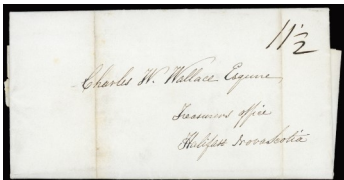 11½
Charles W. Wallace Esquire
Treasurers office
Halifax Novascotia